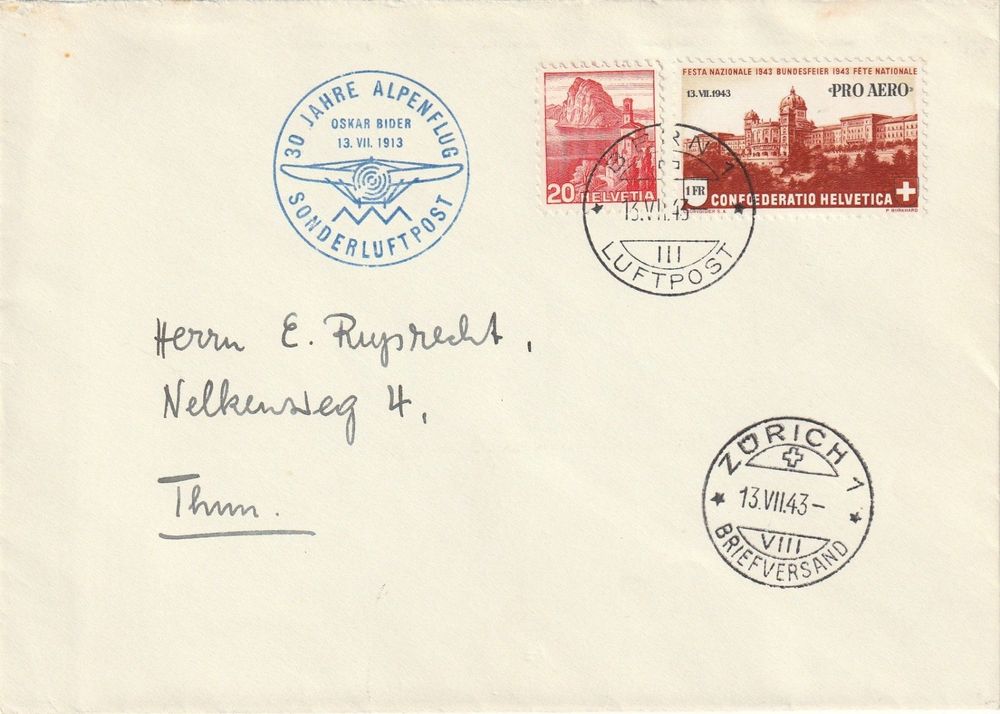 30 JAHRE ALPENFLUG
OSKAR BIDER
13. VII. 1913
SONDERLUFTPOST
20 HELVETIA
FESTA NAZIONALE 1943 BUNDESFEIER 1943 FÊTE NATIONALE
13.VII.1943 «PRO AERO»
1 FR CONFOEDERATIO HELVETICA
P. BURKHARD
BERN 1
13.VII.43
III
LUFTPOST
Herrn E. Ruprecht,
Nelkenweg 4,
Thun.
ZÜRICH 1
13.VII.43-
VIII
BRIEFVERSAND